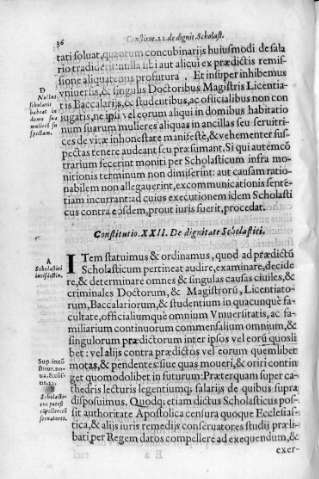 36 Constitut. 22. de dignit. Scholast.
tati soluat, quarum concubinarijs huiusmodi de sala
rio tradi debet: nulla ubi aut alicui ex prædictis remis-
sione aliquatenus profutura. Et insuper inhibemus
vniuersis, & singulis Doctoribus Magistris Licentia-
tis Baccalarijs, & studentibus, ac officialibus non con
iugatis, ne ipsi vel eorum aliqui in domibus habitatio
num suarum mulieres aliquas in ancillas seu seruitri-
ces de vita inhonestate manifestè, & vehementer sus-
pectas tenere audeant seu præsumant. Si qui autem cō
trarium fecerint moniti per Scholasticum infra mo-
nitionis terminum non dimiserint: aut causam ratio-
nabilem non allegauerint, excommunicationis senten-
tiam incurrant: ad cuius executionem idem Scholasti
cus contra eosdem, prout iuris fuerit, procedat.
D
Nullus
scholaris
habeat in
domo sua
mulierē su
spectam.
Constitutio. XXII. De dignitate Scholastici.
A
Scholastici
iurisdictio.
ITem statuimus & ordinamus, quod ad prædictū
Scholasticum pertineat audire, examinare, decide
re, & determinare omnes & singulas causas ciuiles, &
criminales Doctorum, & Magistrorū, Licentiato-
rum, Baccalariorum, & studentium in quacunque fa-
cultate, officialiumque omnium Vniuersitatis, ac fa-
miliarium continuorum commensalium omnium, &
singulorum prædictorum inter ipsos vel eorū quosli
bet: vel alijs contra prædictos vel eorum quemlibet
motas, & pendentes: siue quas moueri, & oriri contin
get quomodolibet in futurum: Præterquam super ca-
thedris lecturis legentiumque salarijs de quibus supra
disposuimus. Quodque etiam dictus Scholasticus pos-
sit authoritate Apostolica censura quoque Ecclesias-
tica, & alijs iuris remedijs conseruatores studij præli-
bati, per Regem datos compellere ad exequendum, &
exer-
Scholasti-
cus potest
cōpellere cō
seruatores.